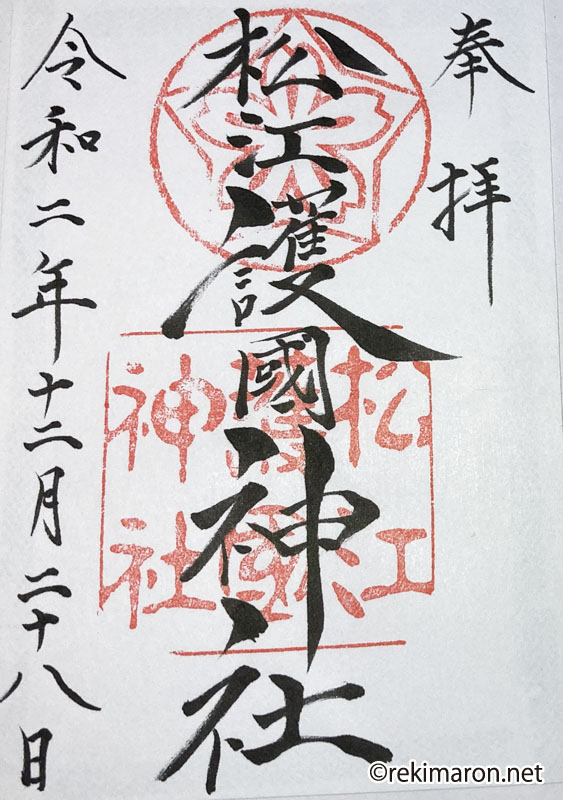 奉拝
松江護國神社
松江
護國
神社
令和二年十二月二十八日
©rekimaron.net